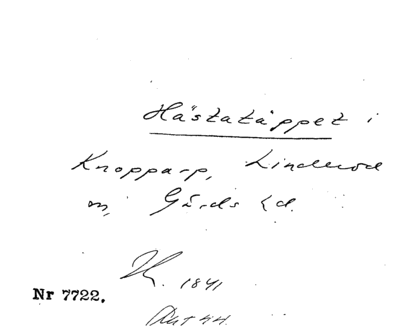 Hästatäppet i
Knopparp, Linderöd
sn, Gärds hd.
1841
Nr 7722.